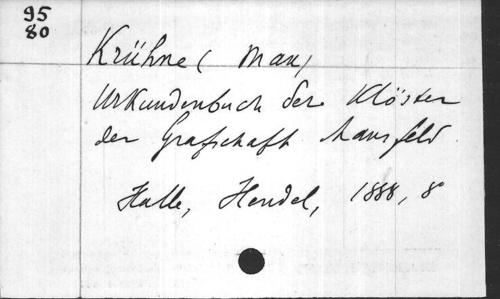 95
80
Krühne ( Max )
Urkundenbuch der Klöster
der Grafschaft Mansfeld.
Halle, Hendel, 1888, 8°